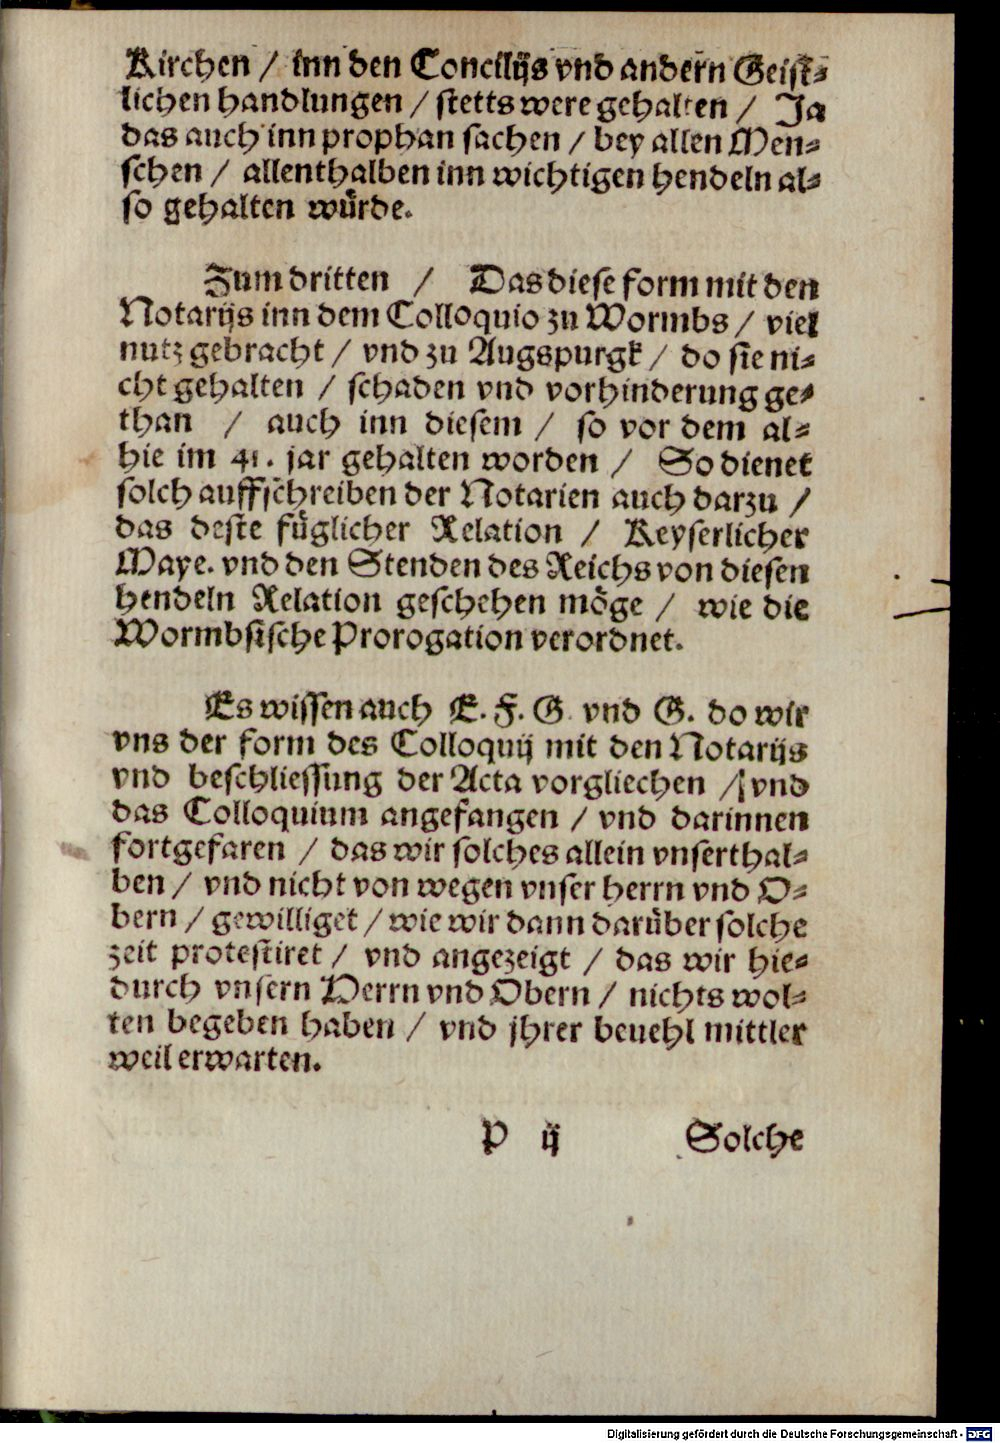 Kirchen / inn den Concilijs vnd andern Geist-
lichen handlungen / stetts were gehalten / Ja
das auch inn prophan sachen / bey allen Men-
schen / allenthalben inn wichtigen hendeln al-
so gehalten würde.
Zum dritten / Das diese form mit den
Notarijs inn dem Colloquio zu Wormbs / viel
nutz gebracht / vnd zu Augspurgk / do sie ni-
cht gehalten / schaden vnd vorhinderung ge-
than / auch inn diesem / so vor dem al-
hie im 41. jar gehalten worden / So dienet
solch auffschreiben der Notarien auch darzu /
das deste füglicher Relation / Keyserlicher
Maye. vnd den Stenden des Reichs von diesen
hendeln Relation geschehen möge / wie die
Wormbsische Prorogation verordnet.
Es wissen auch E. F. G. vnd G. do wir
vns der form des Colloquij mit den Notarijs
vnd beschliessung der Acta vorgliechen / vnd
das Colloquium angefangen / vnd darinnen
fortgefaren / das wir solches allein vnserthal-
ben / vnd nicht von wegen vnser herrn vnd O-
bern / gewilliget / wie wir dann darüber solche
zeit protestiret / vnd angezeigt / das wir hie-
durch vnsern Herrn vnd Obern / nichts wol-
ten begeben haben / vnd jhrer beuehl mittler
weil erwarten.
P ij Solche
Digitalisierung gefördert durch die Deutsche Forschungsgemeinschaft - DFG